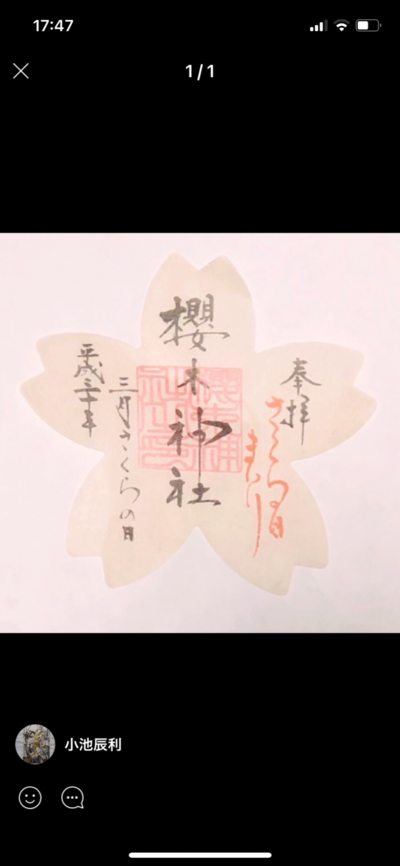 17:47
1/1
奉拝
さくらの日
まいり
櫻木神社
三月さくらの日
平成三十年
小池辰利